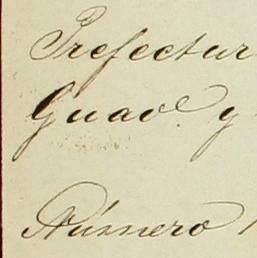 Prefectur
Guad.e y
Número 1